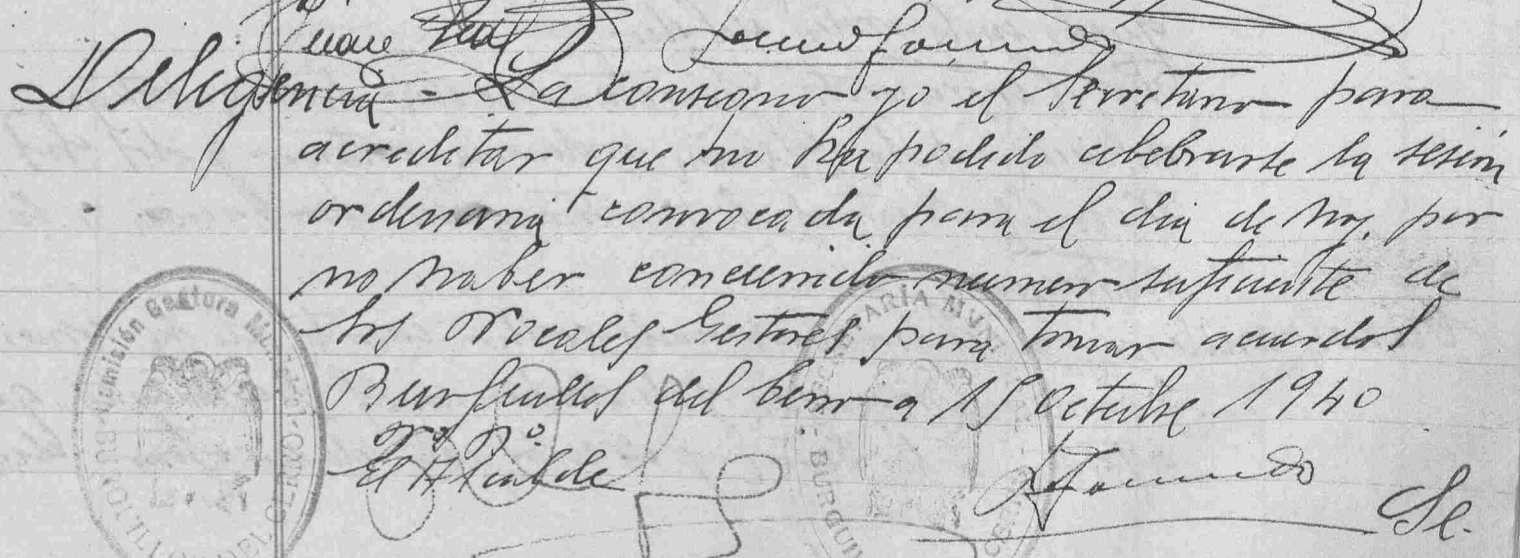 Diligencia - La consigno yo el Secretario para
acreditar que no ha podido celebrarse la sesión
ordinaria convocada para el dia de hoy, por
no haber concurrido numero suficiente de
los Vocales Gestores para tomar acuerdos
Burguillos del Cerro a 15 Octubre 1940
Vº Bº
El Alcalde
Comisión Gestora
SECRETARÍA
BURGUILLOS DEL